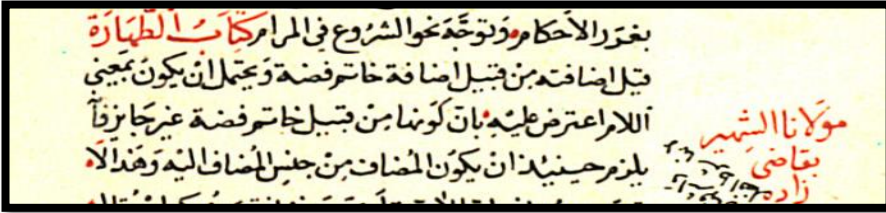 بغرر الأحكام وتوجه نحو الشروع في المرام كتاب الطهارة
قيل اضافته من قبيل اضافة خاتم فضة ويحتمل ان يكون بمعنى
اللام اعترض عليه بان كونها من قبيل خاتم فضة غير جايز فانه
يلزم حينيذ ان يكون المضاف من جنس المضاف اليه وهذا لانه
مولانا الشهير
بقاضي
زاده